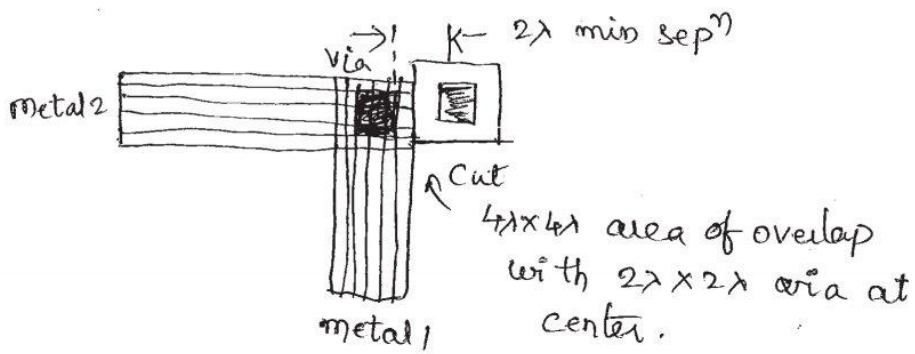 2λ min sepⁿ
via
Metal2
Cut
4λ×4λ area of overlap
with 2λ×2λ via at
center.
Metal1